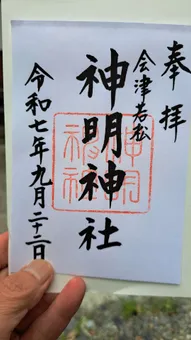 奉拝
会津若松
神明神社
令和七年九月二十二日